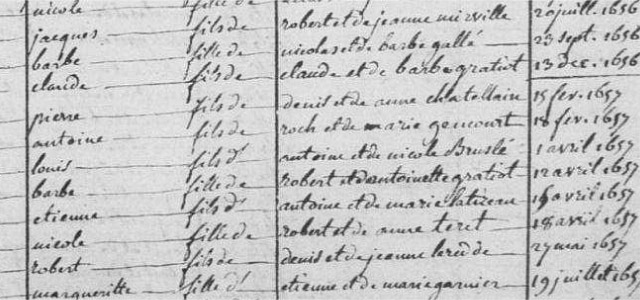 nicole fille de
jacques fils de robert et de jeanne mirville 20 juill. 1656
barbe fille de nicolas et de barbe gallé 23 sept. 1656
claude fils de claude et de barbe gratiot 13 dec. 1656
pierre fils de denis et de anne chatellain 15 fev. 1657
antoine fils de roch et de marie gencourt 18 fev. 1657
louis fils d' antoine et de nicole Bruslé 1 avril 1657
barbe fille de robert et de antoinette gratiot 12 avril 1657
etienne fils d' antoine et de marie 15 avril 1657
nicole fille de robert et de anne teret 18 avril 1657
robert fils de denis et de jeanne 27 mai 1657
margueritte fille d' etienne et de marie garnier 19 juillet 165